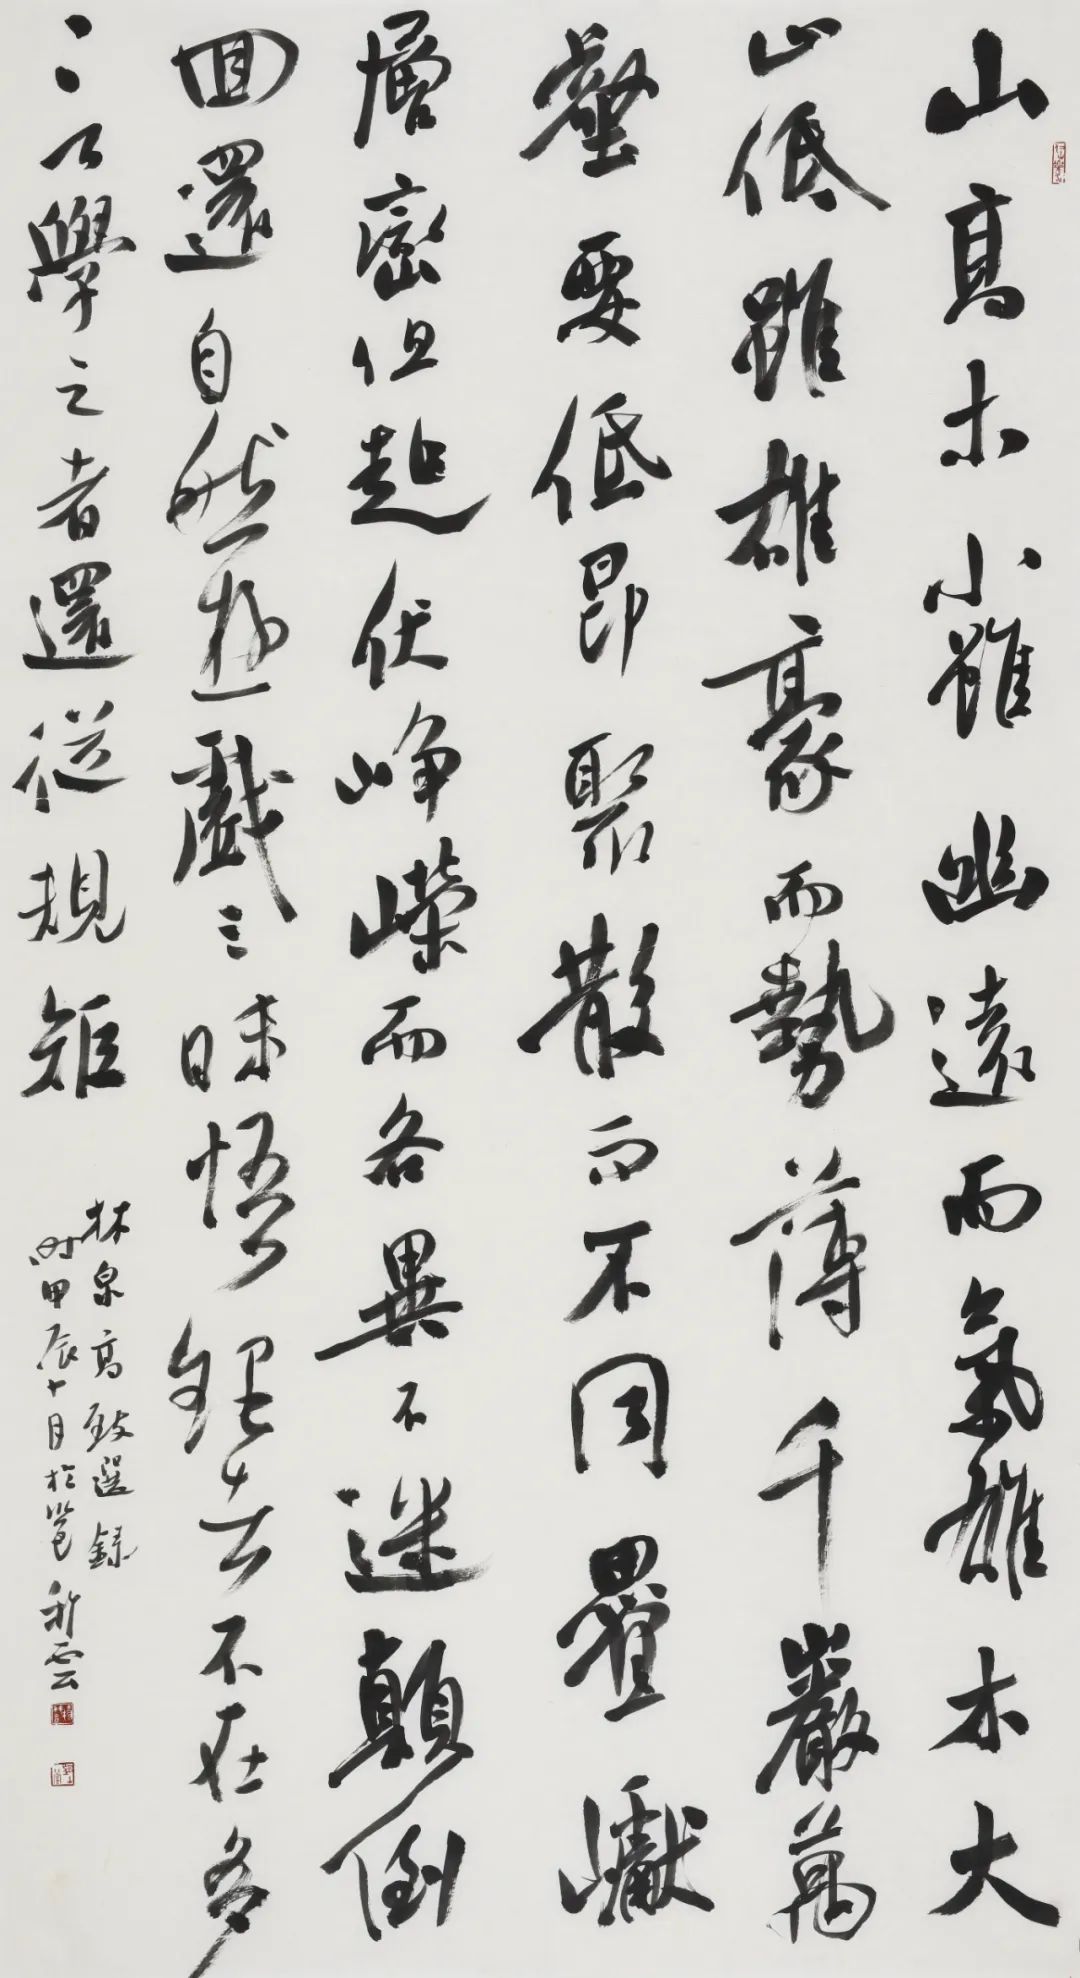 山高木小雖幽遠而氣雄木大
山低雖雄豪而勢薄千巖萬
壑要低昂聚散而不同疊巘
層巒但起伏崢嶸而各異不迷顛倒
回還自然遊戲三昧悟繇去不在多
之學之者還從規矩
林泉高致選錄
時甲辰十月於邕
雲